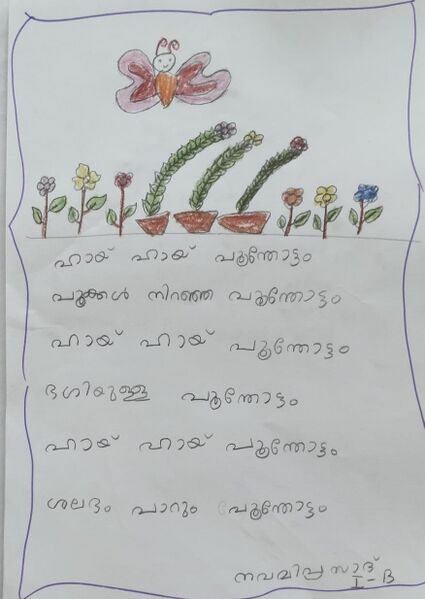 ഹായ് ഹായ് പൂന്തോട്ടം
പൂക്കൾ നിറഞ്ഞ പൂന്തോട്ടം
ഹായ് ഹായ് പൂന്തോട്ടം
ഭഗിയുള്ള പൂന്തോട്ടം
ഹായ് ഹായ് പൂന്തോട്ടം
ശലഭം പാറും പൂന്തോട്ടം
സാദ്
I-B